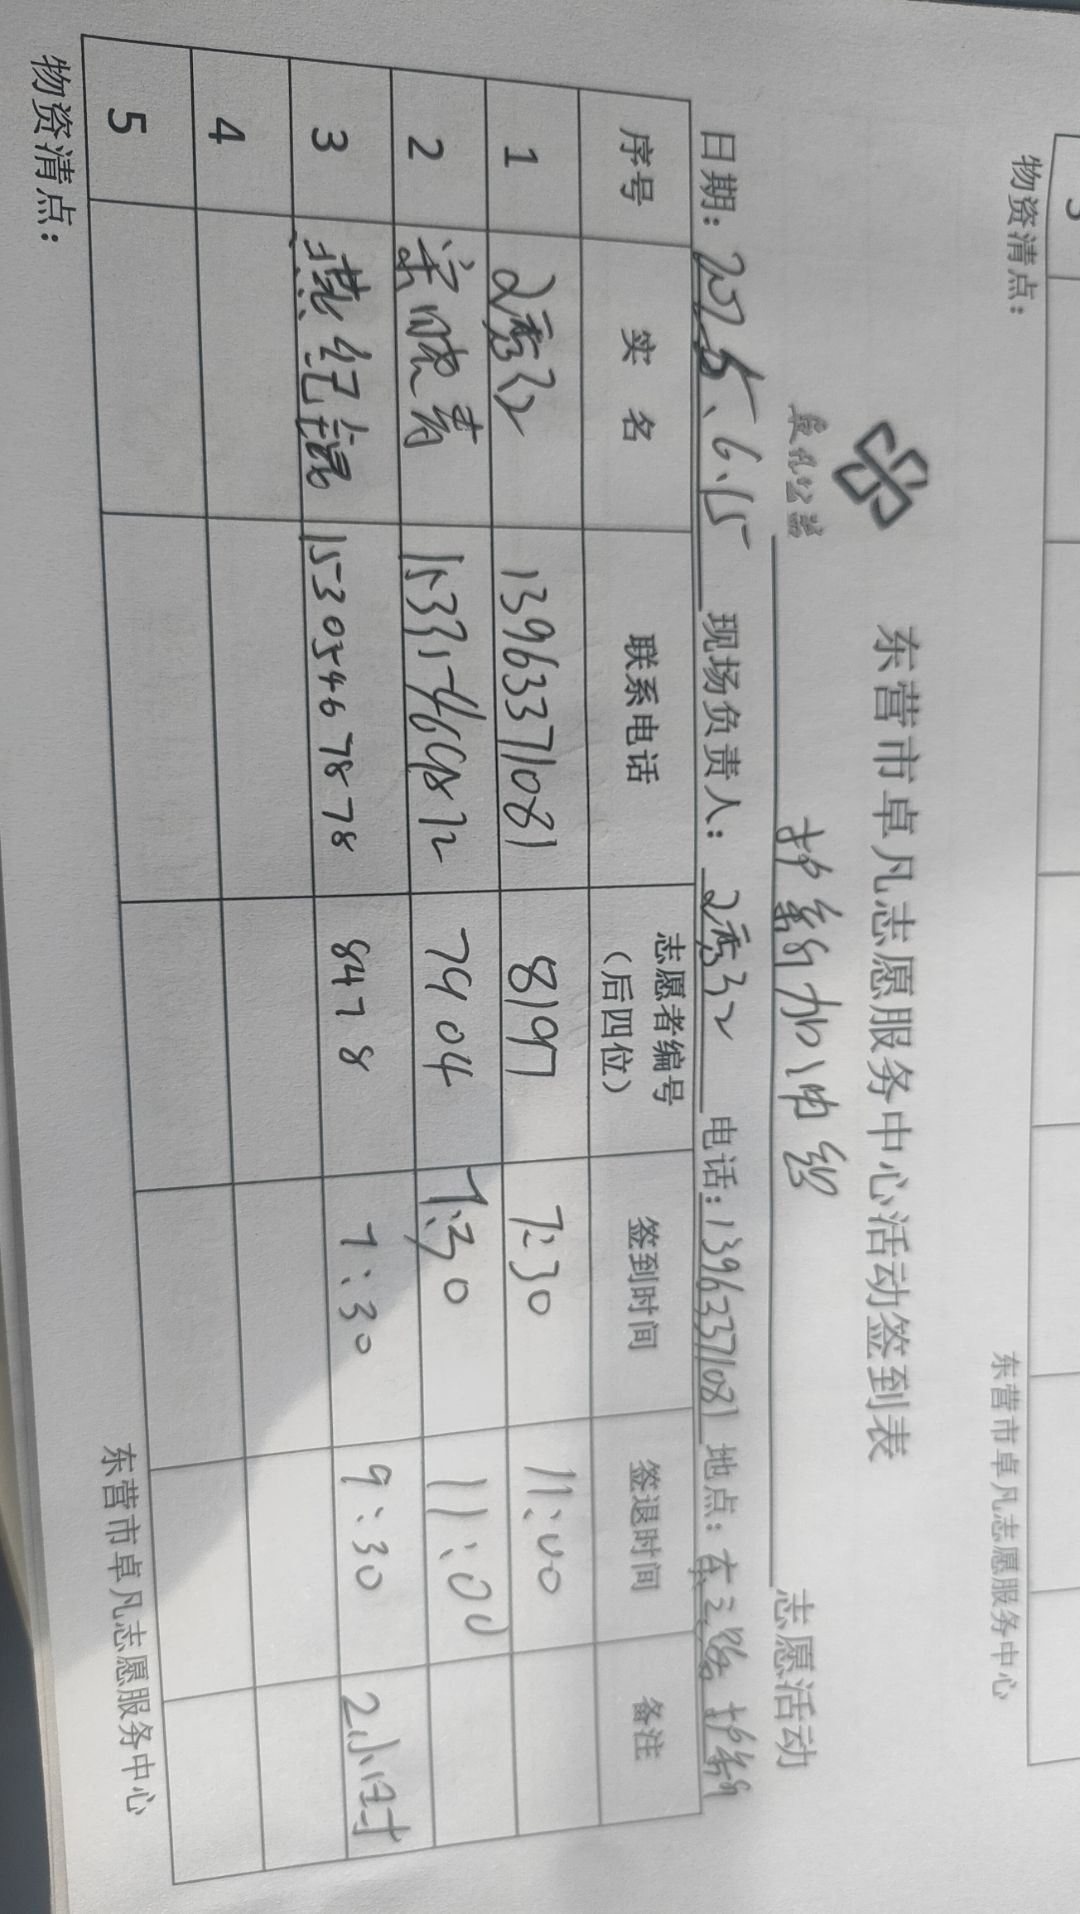 物资清点：
东营市卓凡志愿服务中心
东营市卓凡志愿服务中心活动签到表
公益
护 加油 志愿活动
日期：2025、6.15 现场负责人： 电话：13963371081 地点：东三路护
序号 实 名 联系电话 志愿者编号（后四位） 签到时间 签退时间 备注
1 13963371081 8197 7:30 11:00
2 宋晓青 7904 7:30 11:00
3 燕纪锟 15305467878 8478 7:30 9:30 2小时
4
5
物资清点：
东营市卓凡志愿服务中心